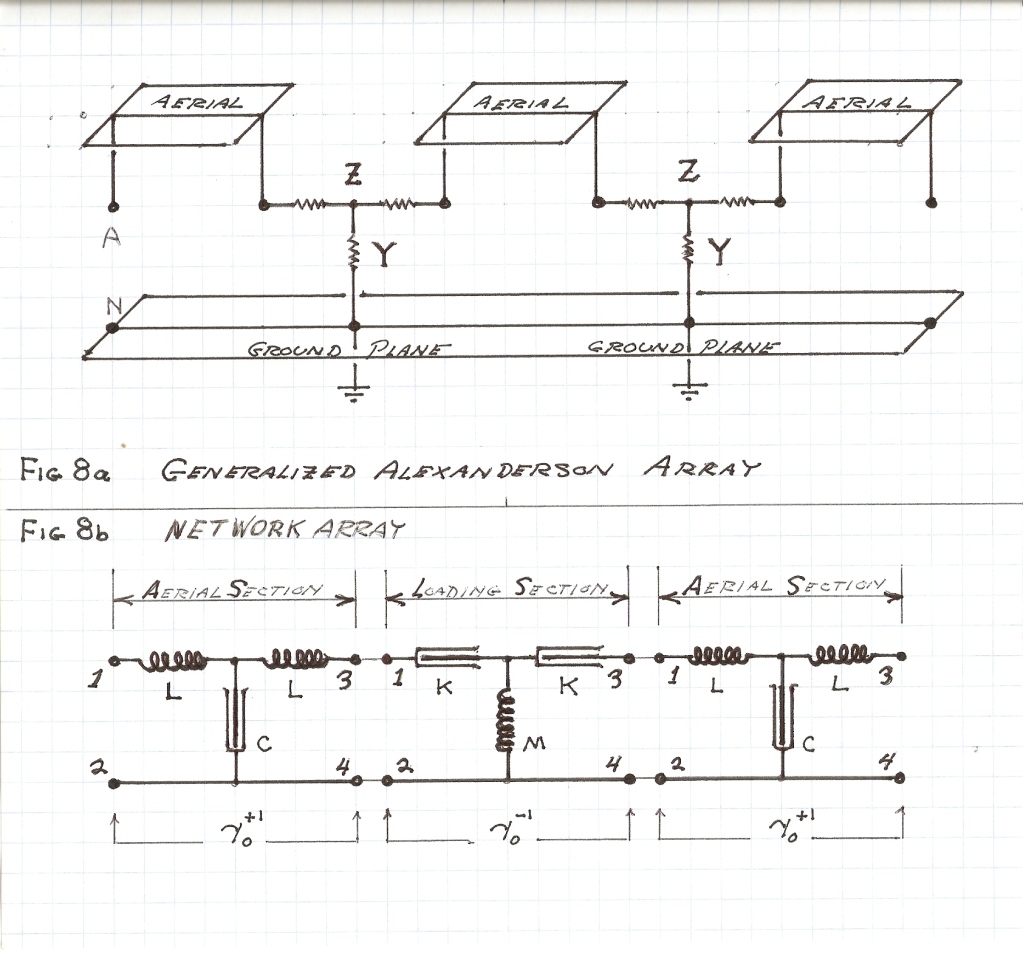 AERIAL AERIAL AERIAL
Z Z
A Y Y
N
GROUND PLANE GROUND PLANE
FIG 8a GENERALIZED ALEXANDERSON ARRAY
FIG 8b NETWORK ARRAY
AERIAL SECTION LOADING SECTION AERIAL SECTION
1 L L 3 1 K K 3 1 L L 3
C M C
2 4 2 4 2 4
γ₀⁺¹ γ₀⁻¹ γ₀⁺¹